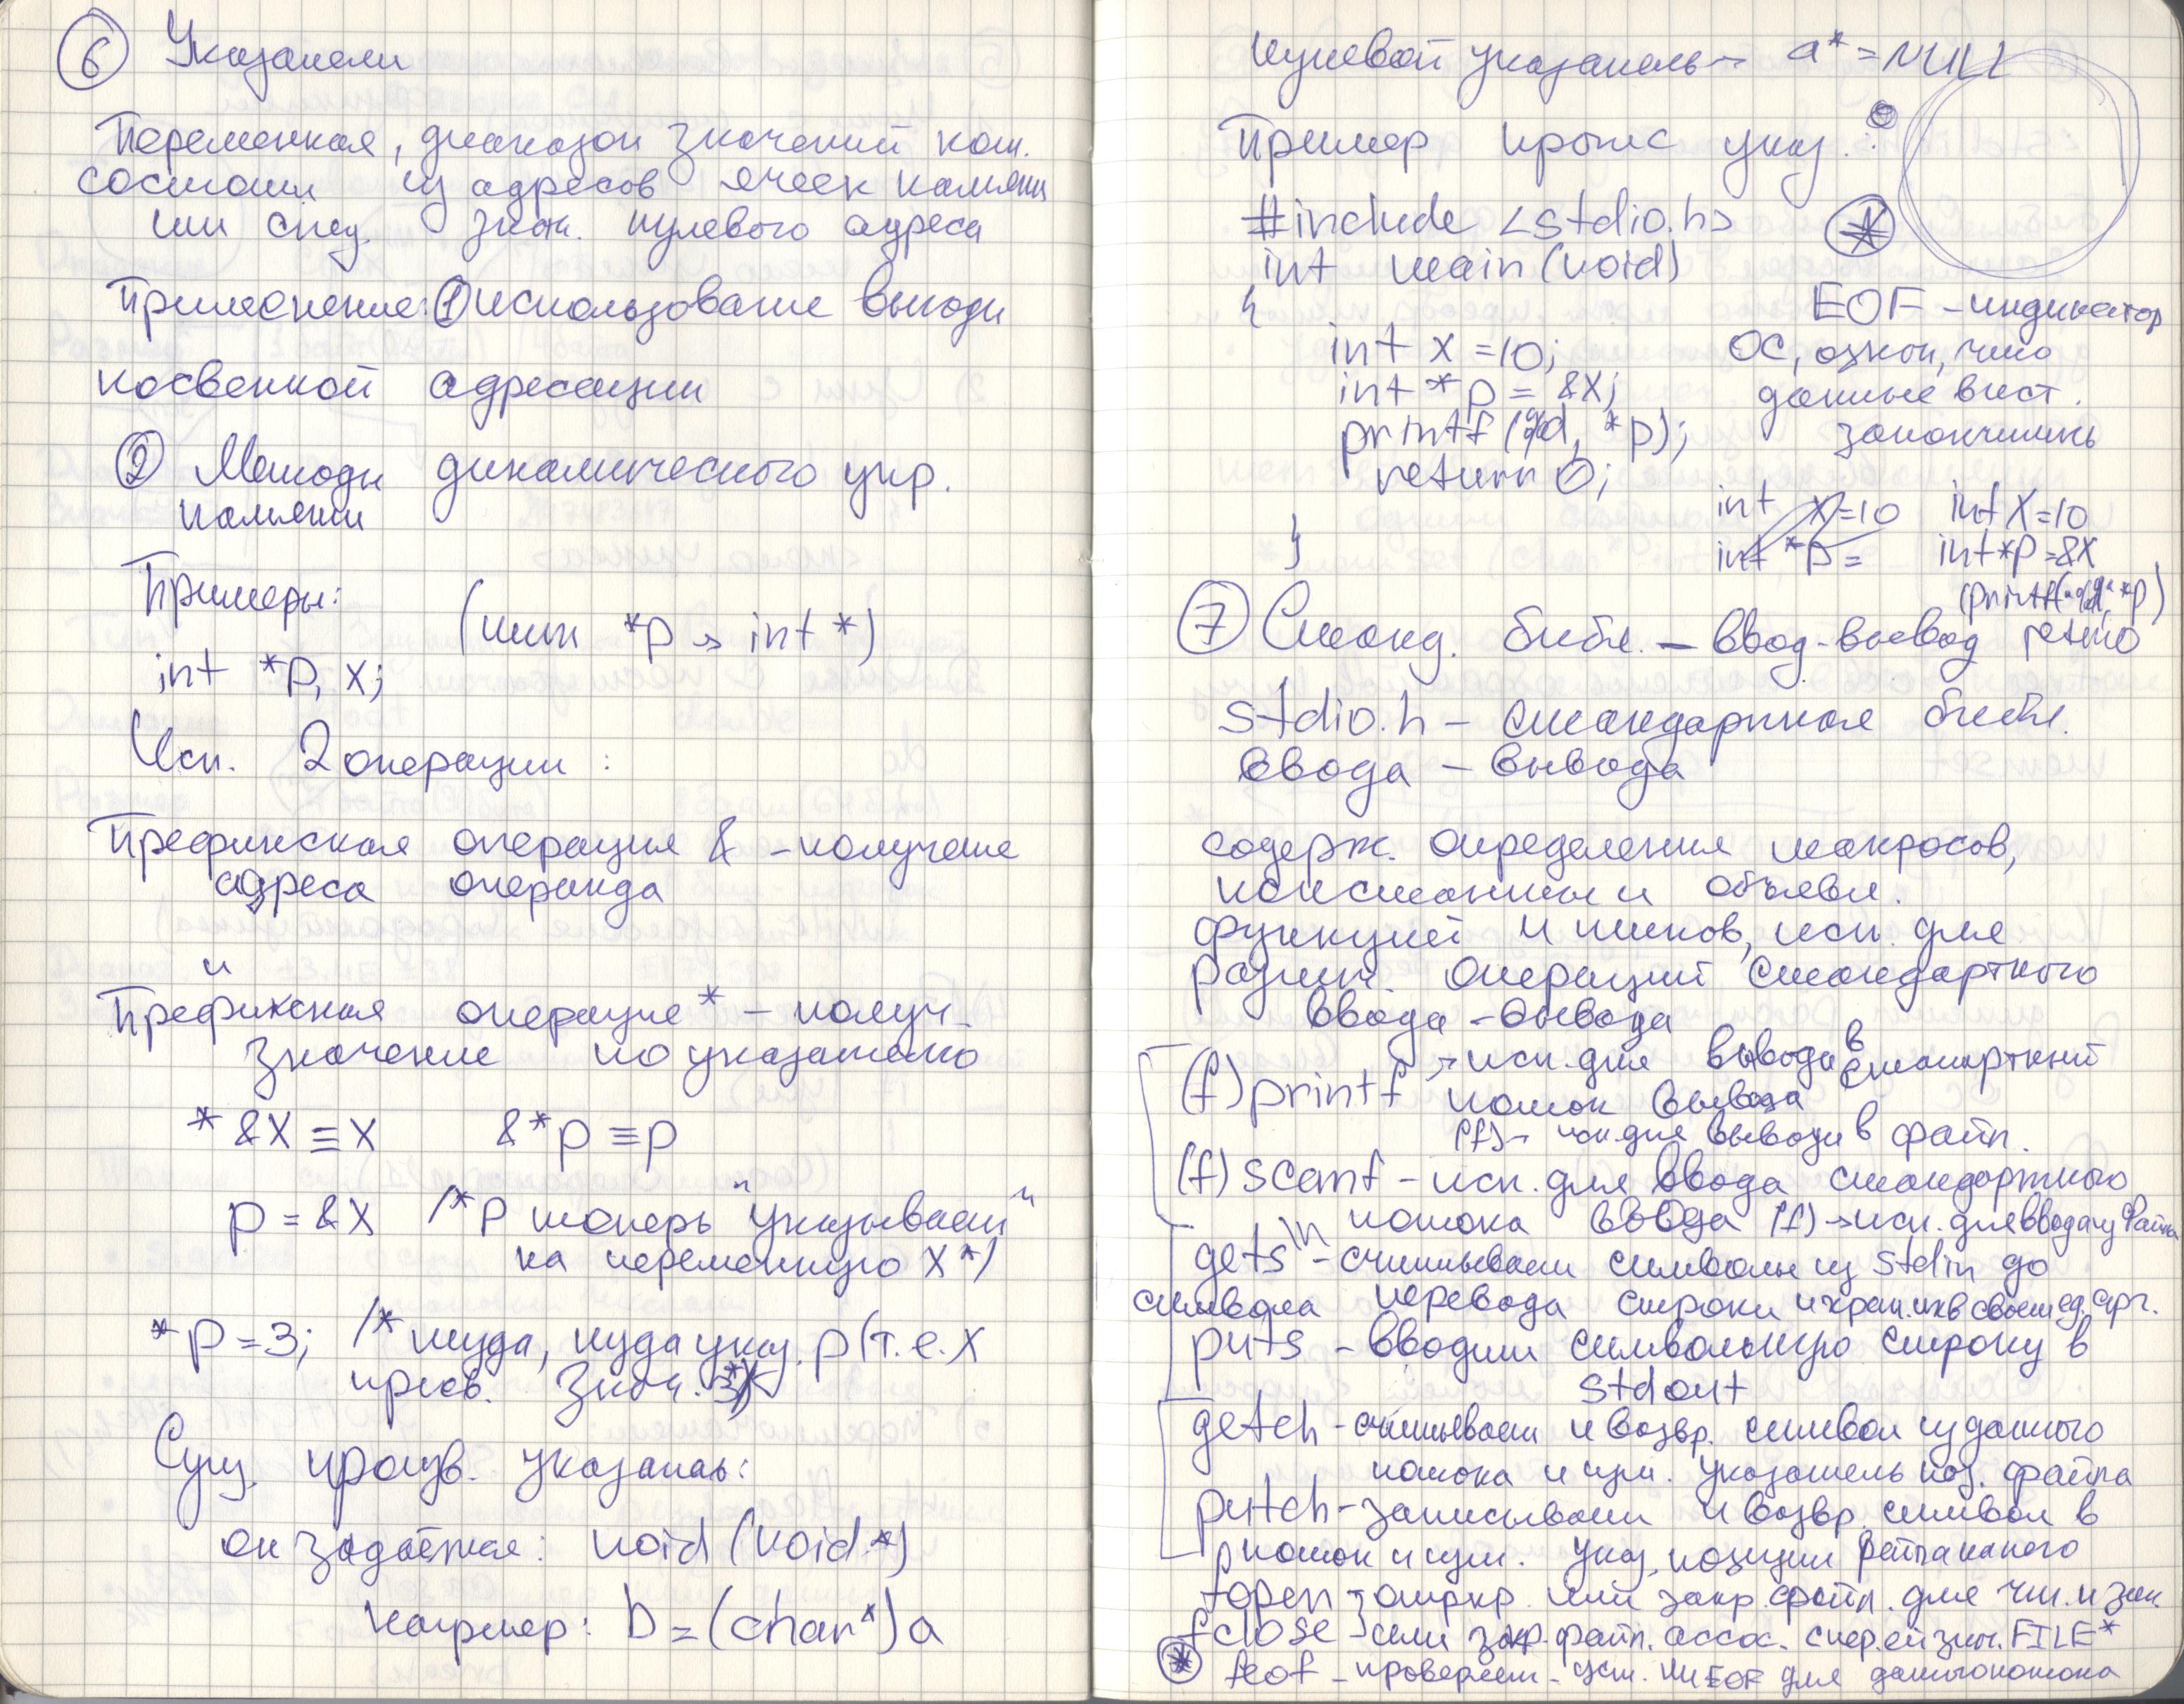 6 Указатели
Переменная, диапазон значений кот.
состоит из адресов ячеек памяти
или спец. знач. нулевого адреса
Применение: ① использование выгоды
косвенной адресации
② Методы динамического упр.
памяти
Примеры:
(тип *p → int *)
int *p, x;
Исп. 2 операции:
Префиксная операция & - получение
адреса операнда
и
Префиксная операция * - получ.
значение по указателю
*&x ≡ x &*p ≡ p
p = &x /*p теперь "указывает"
на переменную x*/
*p = 3; /*туда, куда указ. p (т.е. x
присв. знач. 3*/
Сущ. произв. указатель:
он задаётся: void (void *)
например: b = (char*)a
нулевой указатель → a* = NULL
Пример использ указ.:
#include <stdio.h>
int main(void)
{
int x = 10;
int *p = &x;
printf (%d, *p);
return 0;
}
*
EOF - индикатор
ОС, означ, что
данные в ист.
закончились
int x = 10
int *p =
int x = 10
int *p = &x
(printf("%d", *p)
7 Станд. библ. - ввод-вывод
stdio.h - стандартная библ.
ввода - вывода
содерж. определения макросов,
константы и объявл.
функций и типов, исп. для
различ. операций стандартного
ввода - вывода
(f)printf → исп. для вывода в стандартный
поток вывода
(f) → исп. для вывода в файл.
(f)scanf - исп. для ввода стандартного
потока ввода (f) → исп. для ввода из файла
gets \n - считывает символы из stdin до
символа перевода строки и хран. их в своем ед. арг.
puts - вводит символьную строку в
stdout
getch - считывает и возвр. символ из данного
потока и изм. указатель поз. файла
putch - записывает и возвр. символ в
поток и изм. указ. позиции файла
fopen - откр. или закр. файл. для чт. и зап
fclose - файл. ассоц. с пер. FILE*
* feof - проверяет уст. ли EOF для данного потока